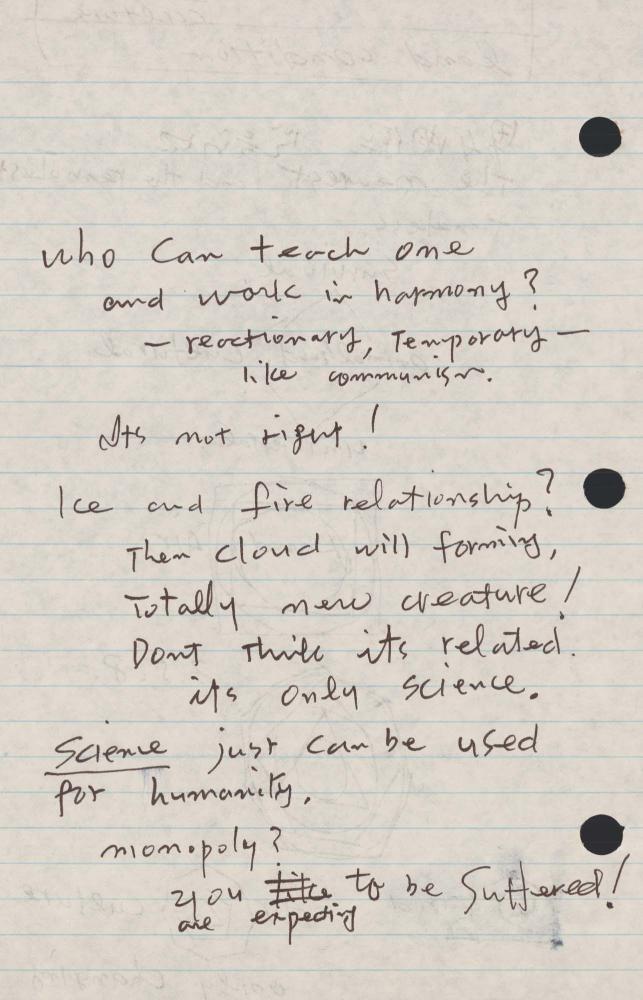 who Can teach one
and work in harmony?
— reactionary, Temporary —
like communism.
Its not right!
Ice and fire relationship?
Then cloud will forming,
Totally new creature!
Dont Think its related.
its only science.
Science just can be used
for humanity.
monopoly?
you to be Suffered!
are expecting